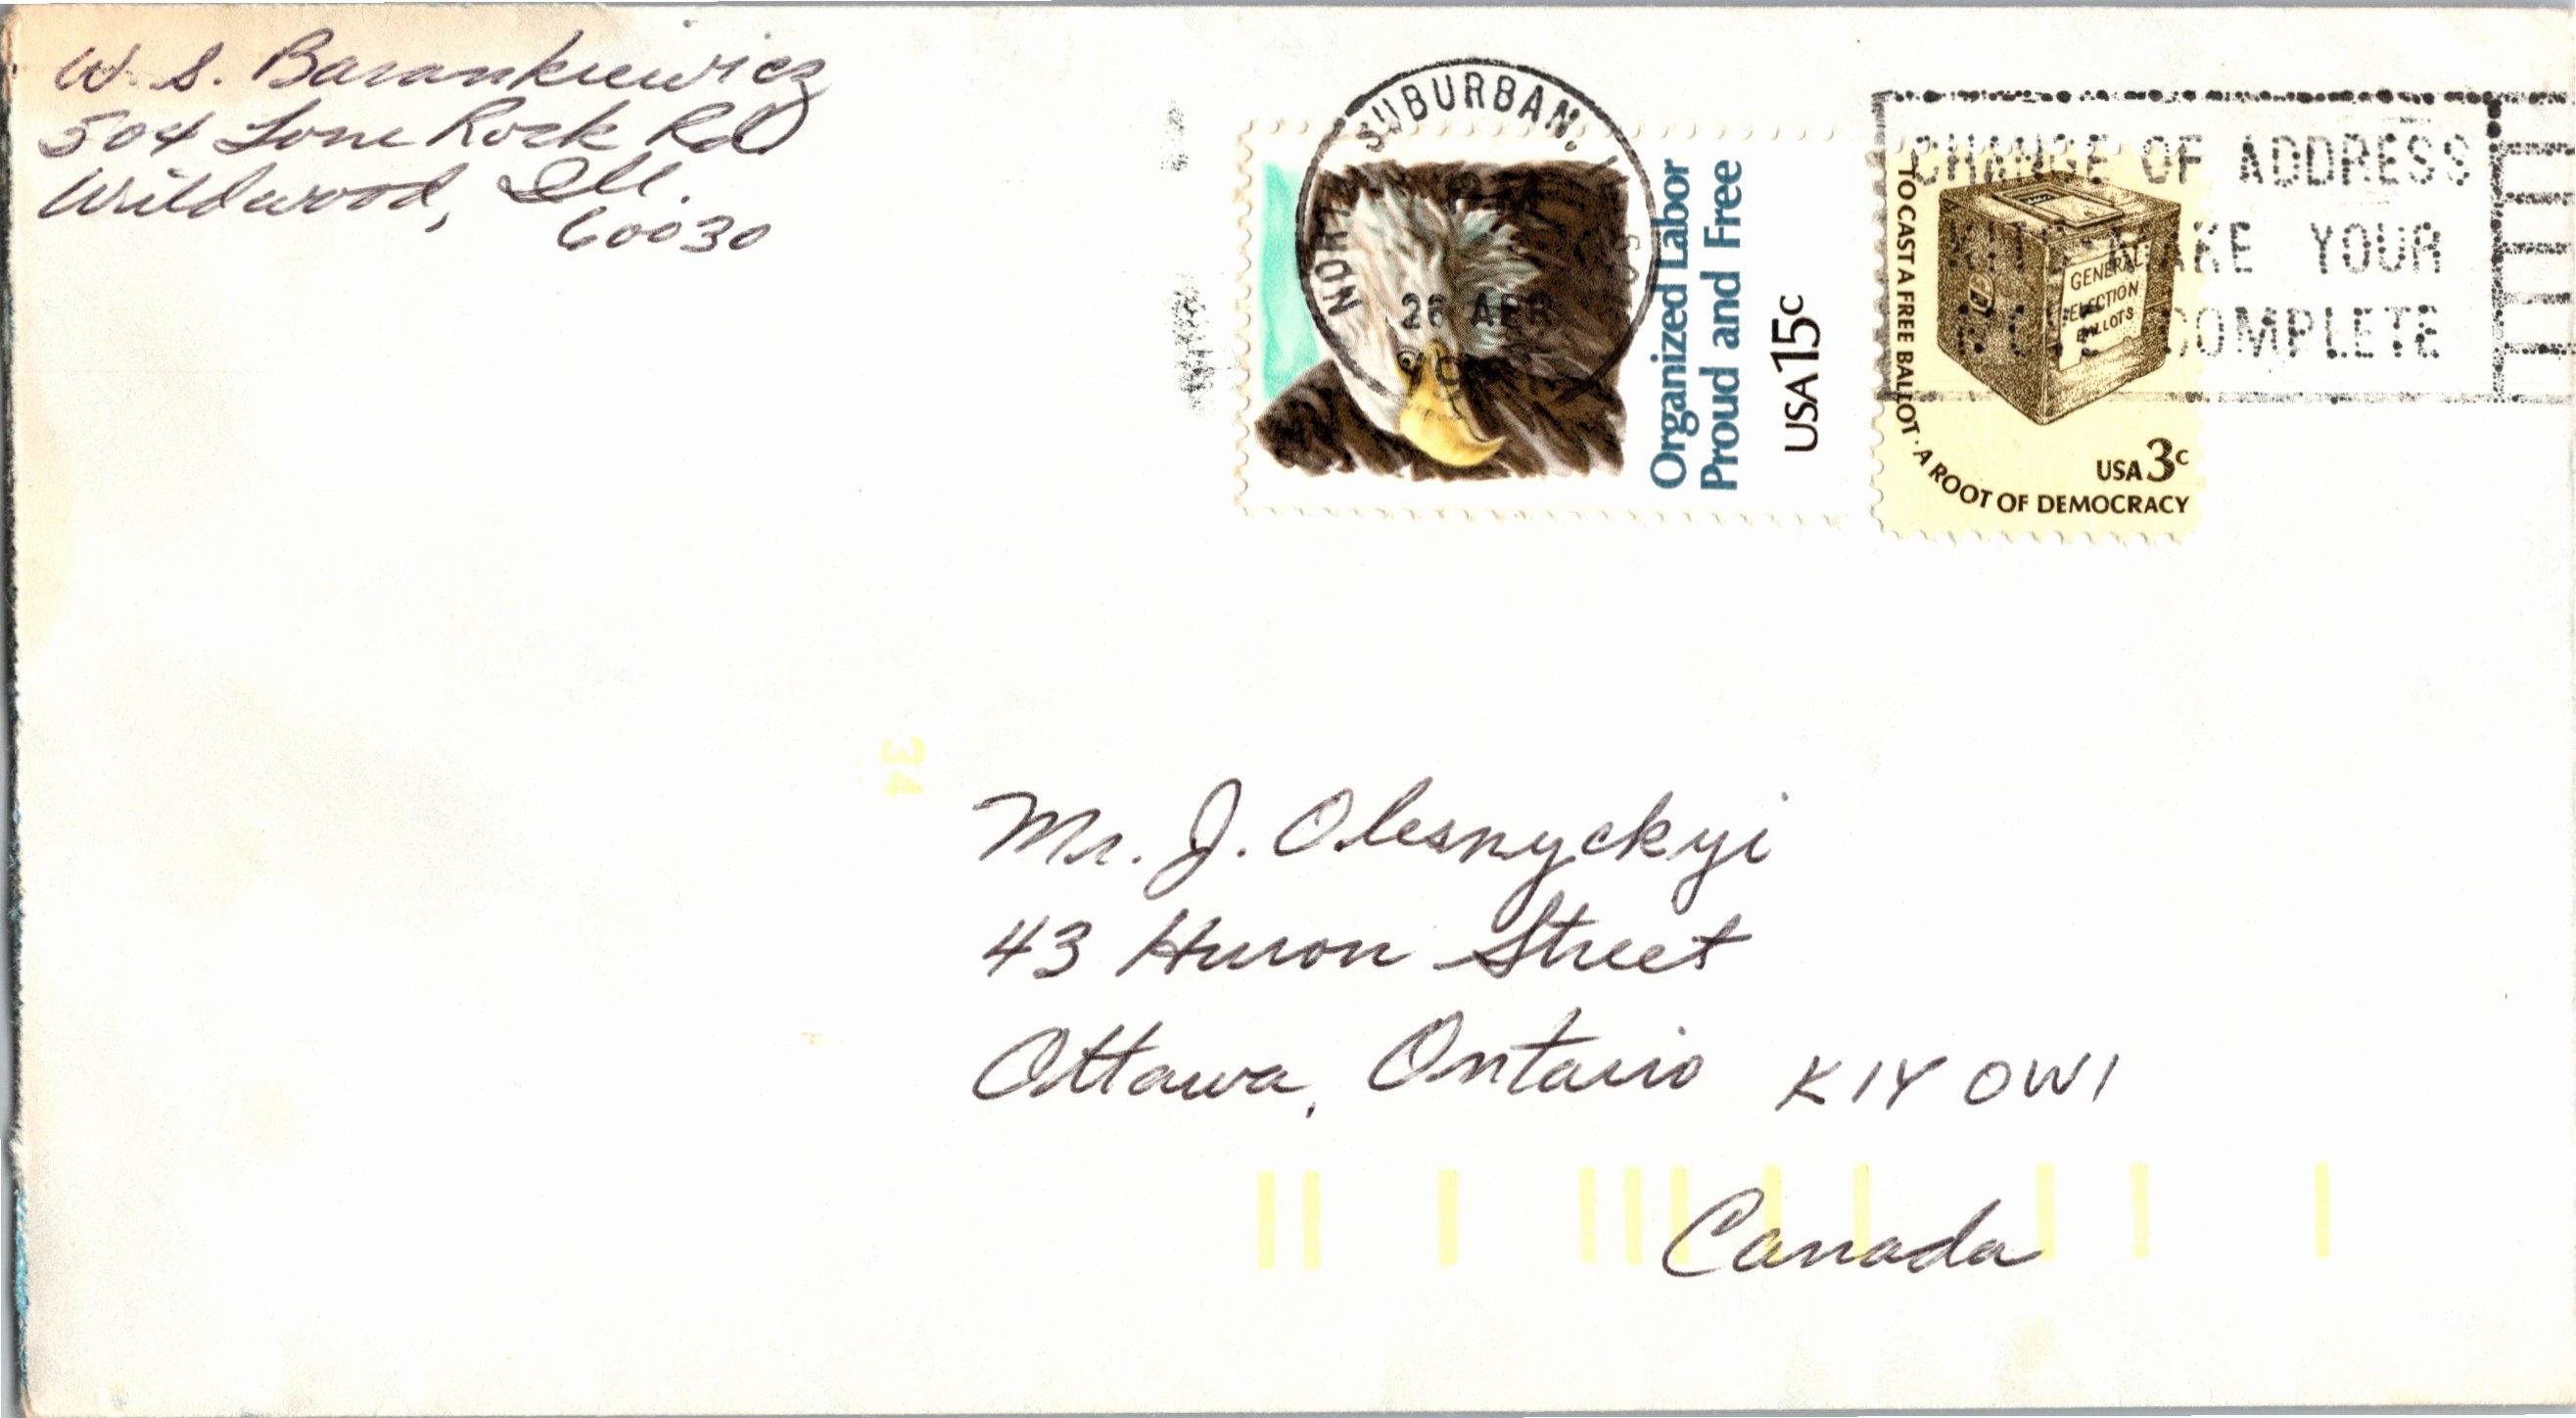 W. S. Barankiewicz
504 Lone Rock Rd
Wildwood, Ill.
60030
NORTH SUBURBAN, IL
26 APR
Organized Labor
Proud and Free
USA 15c
CHANGE OF ADDRESS
MAKE YOUR
COMPLETE
TO CAST A FREE BALLOT · A ROOT OF DEMOCRACY
GENERAL
ELECTION
BALLOTS
USA 3c
34
Mr. J. Olesnyckyi
43 Huron Street
Ottawa, Ontario K1Y 0W1
Canada